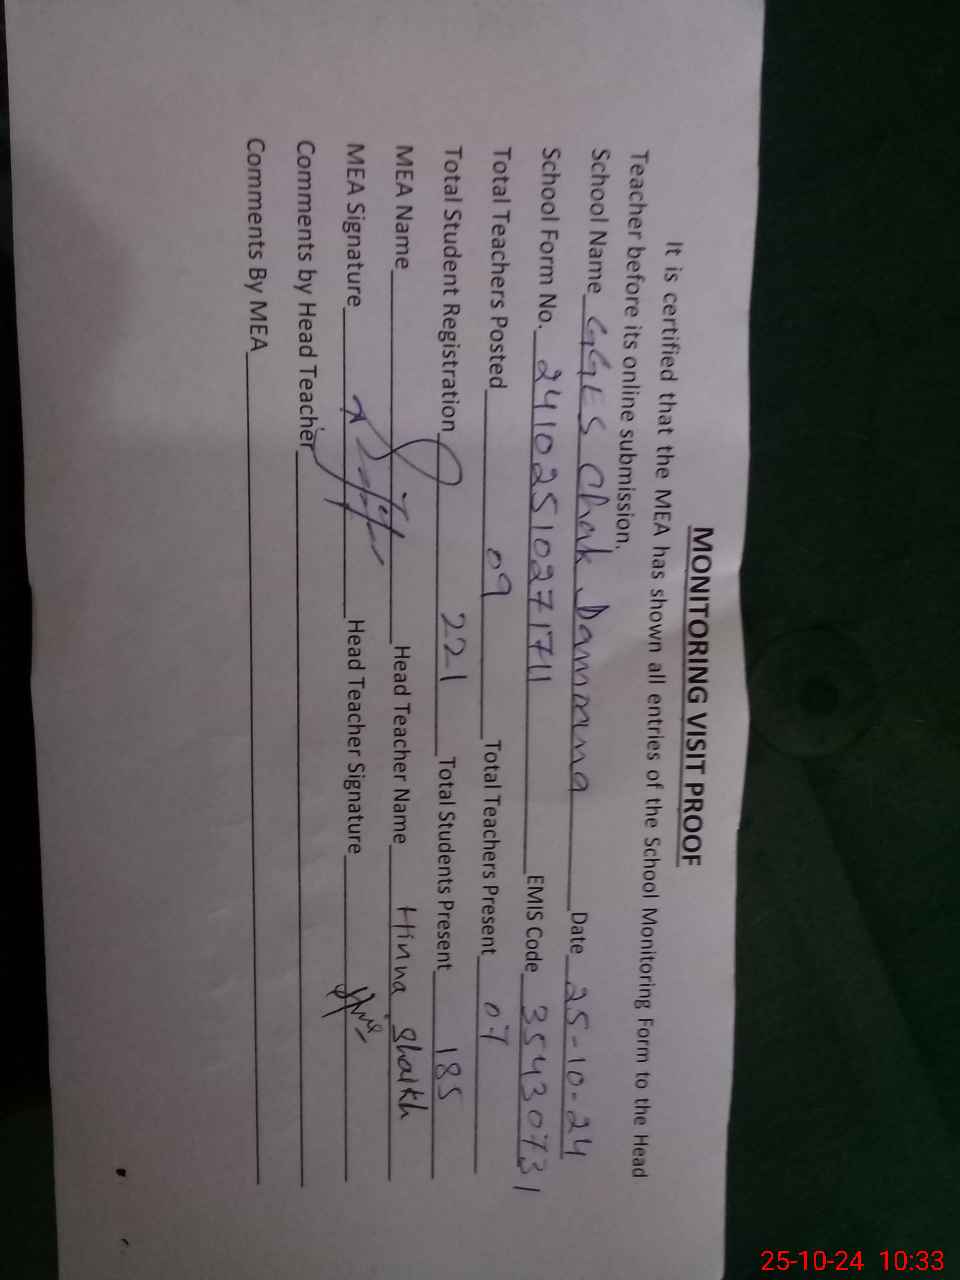 MONITORING VISIT PROOF
It is certified that the MEA has shown all entries of the School Monitoring Form to the Head
Teacher before its online submission.
School Name GGES Chak Dammna Date 25-10-24
School Form No. 24102510271711 EMIS Code 35430731
Total Teachers Posted 09 Total Teachers Present 07
Total Student Registration 221 Total Students Present 185
MEA Name Head Teacher Name Hinna Shaikh
MEA Signature Head Teacher Signature
Comments by Head Teacher
Comments By MEA
25-10-24 10:33